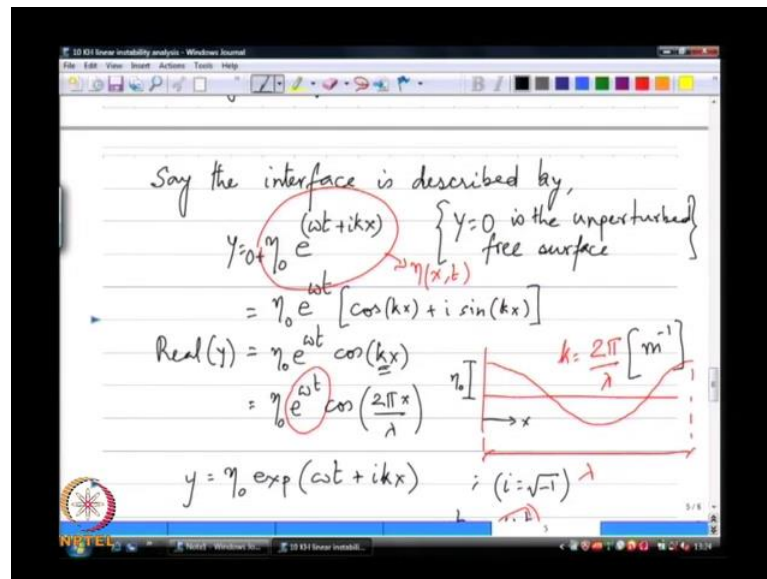 10 KH linear instability analysis - Windows Journal
File Edit View Insert Actions Tools Help
B I
Say the interface is described by,
y=0+η₀ e^(ωt+ikx) {y=0 is the unperturbed free surface}
→ η(x,t)
= η₀ e^ωt [cos(kx) + i sin(kx)]
Real(y) = η₀ e^ωt cos(kx)
k = 2π/λ [m⁻¹]
= η₀ e^ωt cos(2πx/λ)
η₀
x
λ
y = η₀ exp(ωt + ikx) ; (i=√-1)
5/6
5
NPTEL
Note1 - Windows Jo...
10 KH linear instabili...
13:24